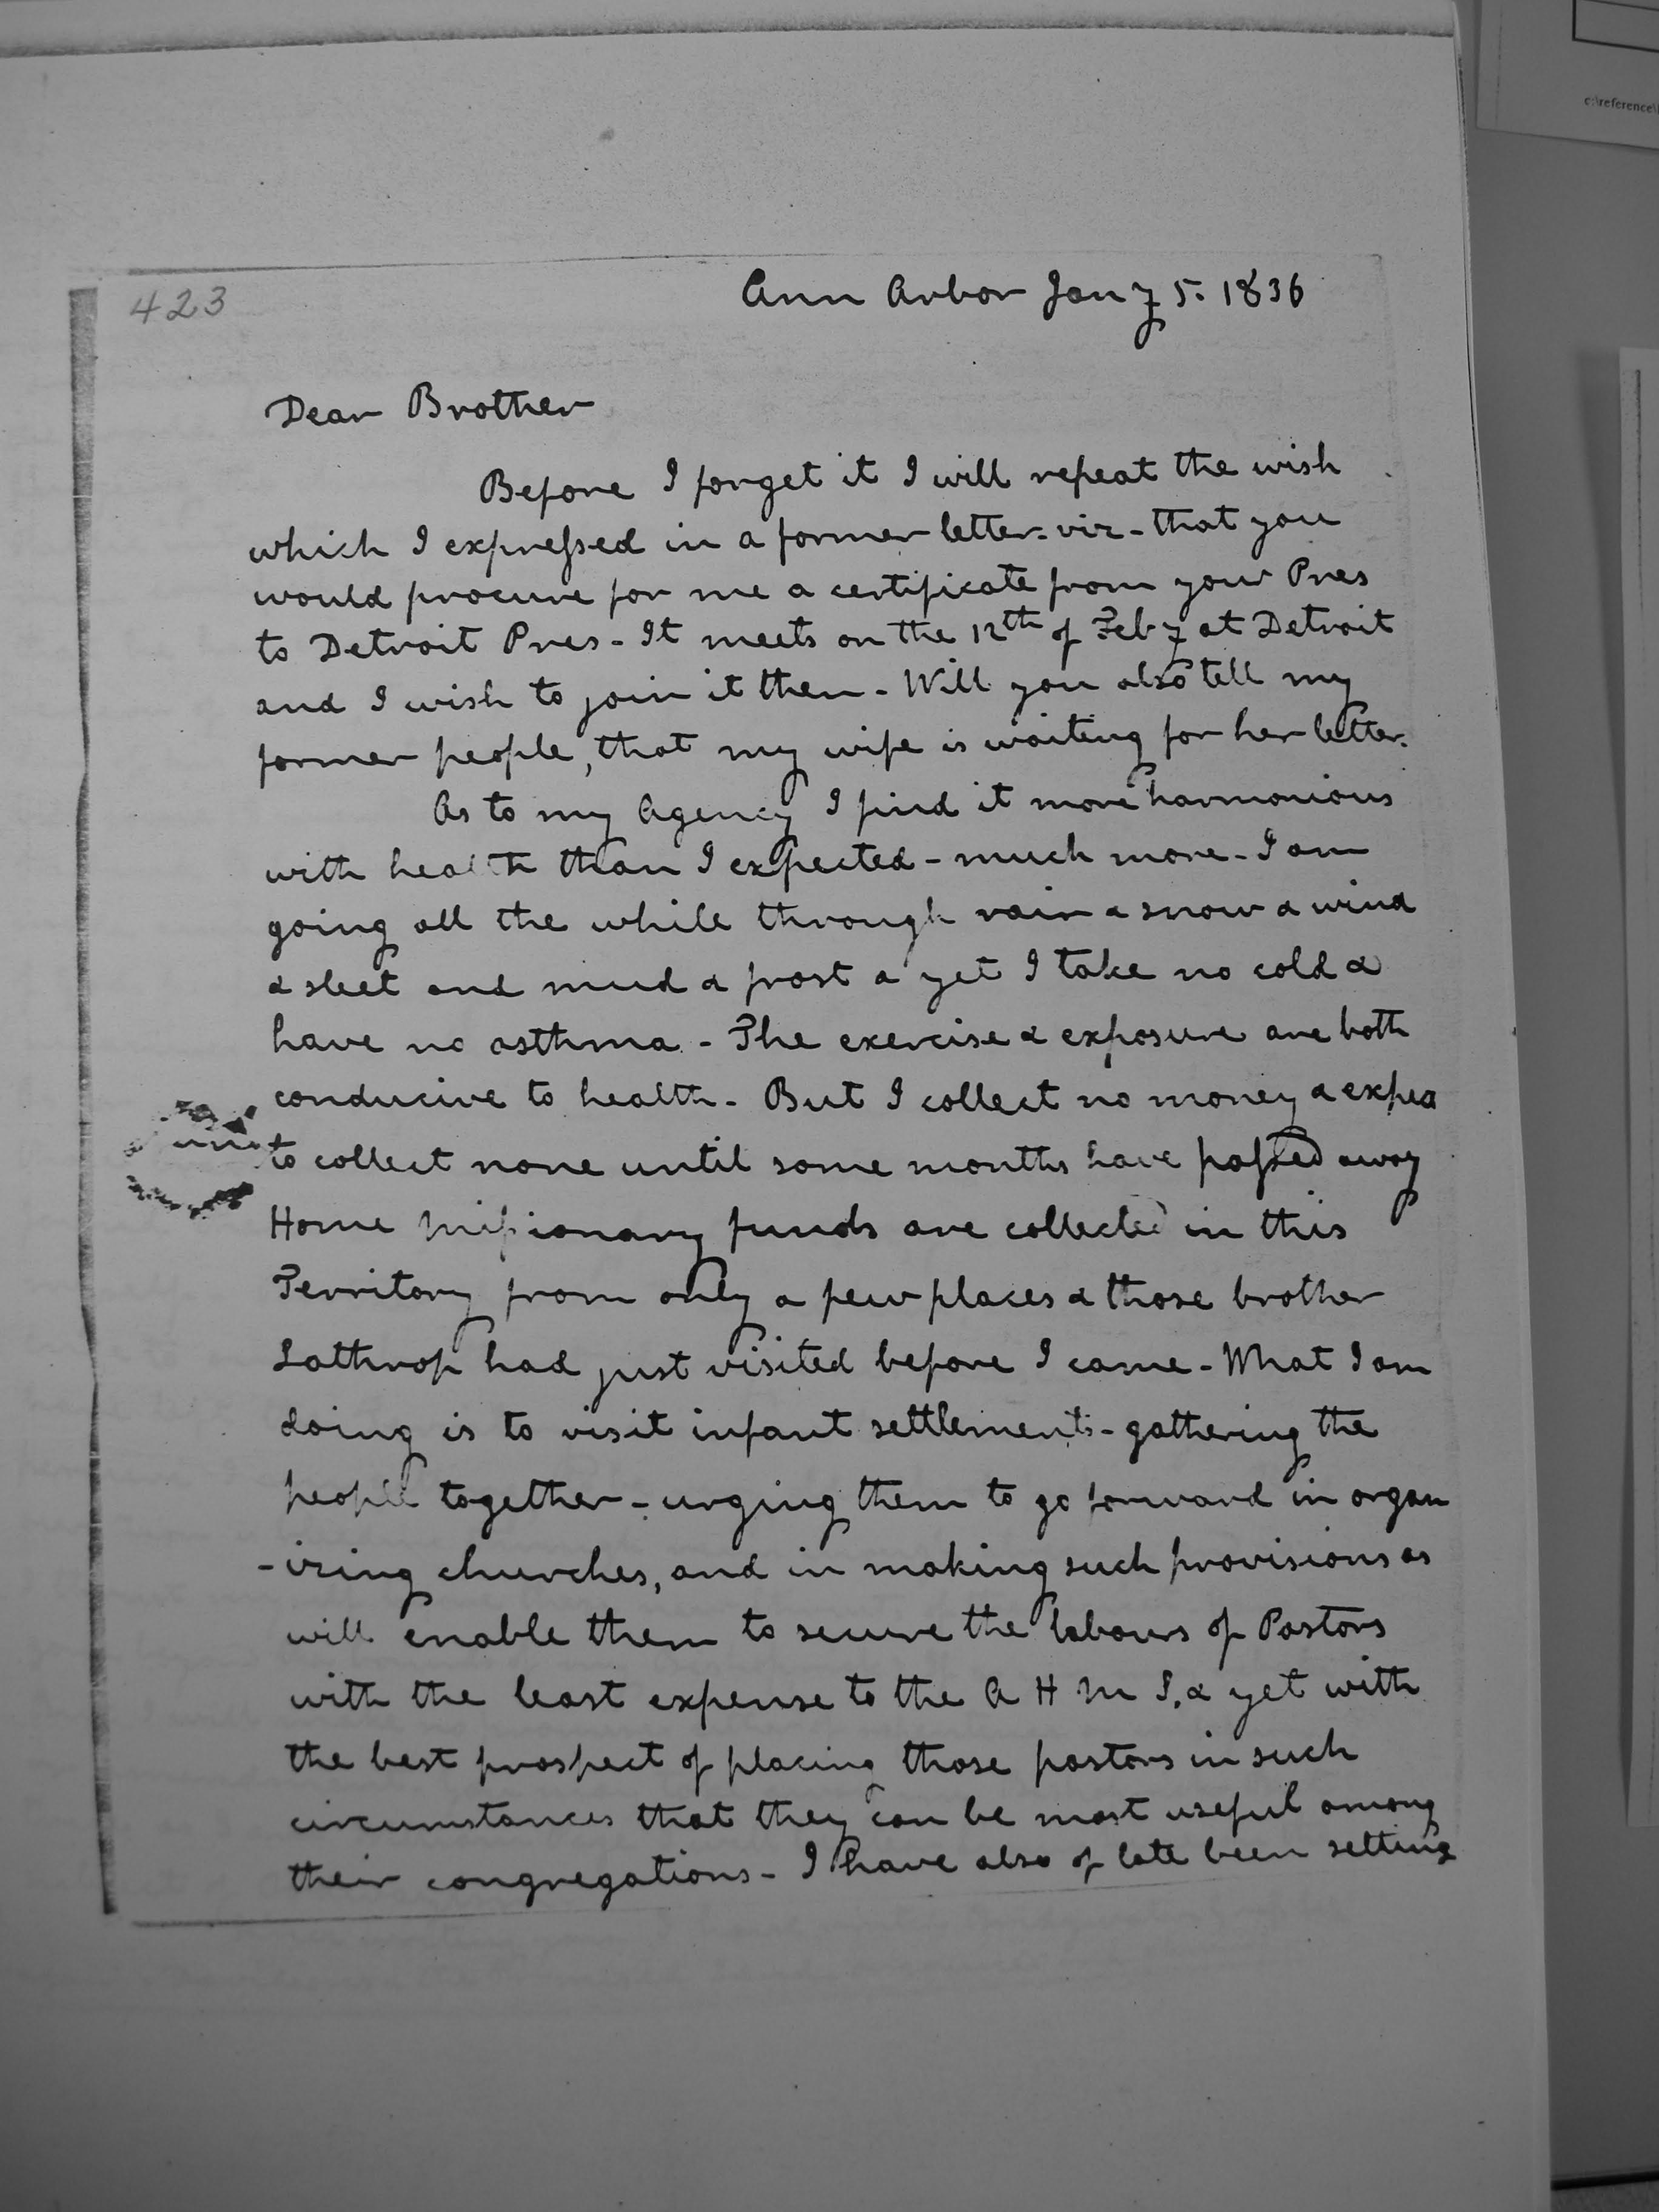 c:\reference\
423
Ann Arbor Jany 5. 1836
Dear Brother
Before I forget it I will repeat the wish
which I expressed in a former letter - viz - that you
would procure for me a certificate from your Pres
to Detroit Pres - It meets on the 12th of Feby at Detroit
and I wish to join it then - Will you also tell my
former people, that my wife is waiting for her letter.
As to my Agency I find it more harmonious
with health than I expected - much more - I am
going all the while through rain & snow & wind
& sleet and mud & frost & yet I take no cold &
have no asthma - The exercise & exposure are both
conducive to health - But I collect no money & expec
to collect none until some months have passed away
Home Missionary funds are collected in this
Territory from only a few places & those brother
Lathrop had just visited before I came - What I am
doing is to visit infant settlements - gathering the
people together - urging them to go forward in organ
-izing churches, and in making such provisions as
will enable them to secure the labours of Pastors
with the least expense to the A H M S, & yet with
the best prospect of placing those pastors in such
circumstances that they can be most useful among
their congregations - I have also of late been setting